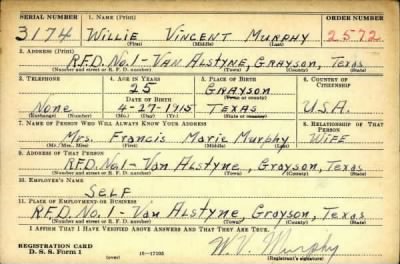 SERIAL NUMBER 1. NAME (Print) ORDER NUMBER
3174 WILLIE VINCENT MURPHY 2572
(First) (Middle) (Last)
2. ADDRESS (Print)
R.F.D. No. 1 - VAN ALSTYNE, GRAYSON, TEXAS
(Number and street or R. F. D. number) (Town) (County) (State)
3. TELEPHONE 4. AGE IN YEARS 5. PLACE OF BIRTH 6. COUNTRY OF CITIZENSHIP
25 GRAYSON
DATE OF BIRTH (Town or county)
None 4-27-1915 TEXAS U.S.A.
(Exchange) (Number) (Mo.) (Day) (Yr.) (State or country)
7. NAME OF PERSON WHO WILL ALWAYS KNOW YOUR ADDRESS 8. RELATIONSHIP OF THAT PERSON
Mrs. Francis Marie Murphy WIFE
(Mr., Mrs., Miss) (First) (Middle) (Last)
9. ADDRESS OF THAT PERSON
R.F.D. No. 1 - Van Alstyne, Grayson, Texas
(Number and street or R. F. D. number) (Town) (County) (State)
10. EMPLOYER'S NAME
SELF
11. PLACE OF EMPLOYMENT OR BUSINESS
R.F.D. No. 1 - Van Alstyne, Grayson, Texas
(Number and street or R. F. D. number) (Town) (County) (State)
I AFFIRM THAT I HAVE VERIFIED ABOVE ANSWERS AND THAT THEY ARE TRUE.
REGISTRATION CARD
D. S. S. FORM 1 (over) W. V. Murphy
(Registrant's signature)